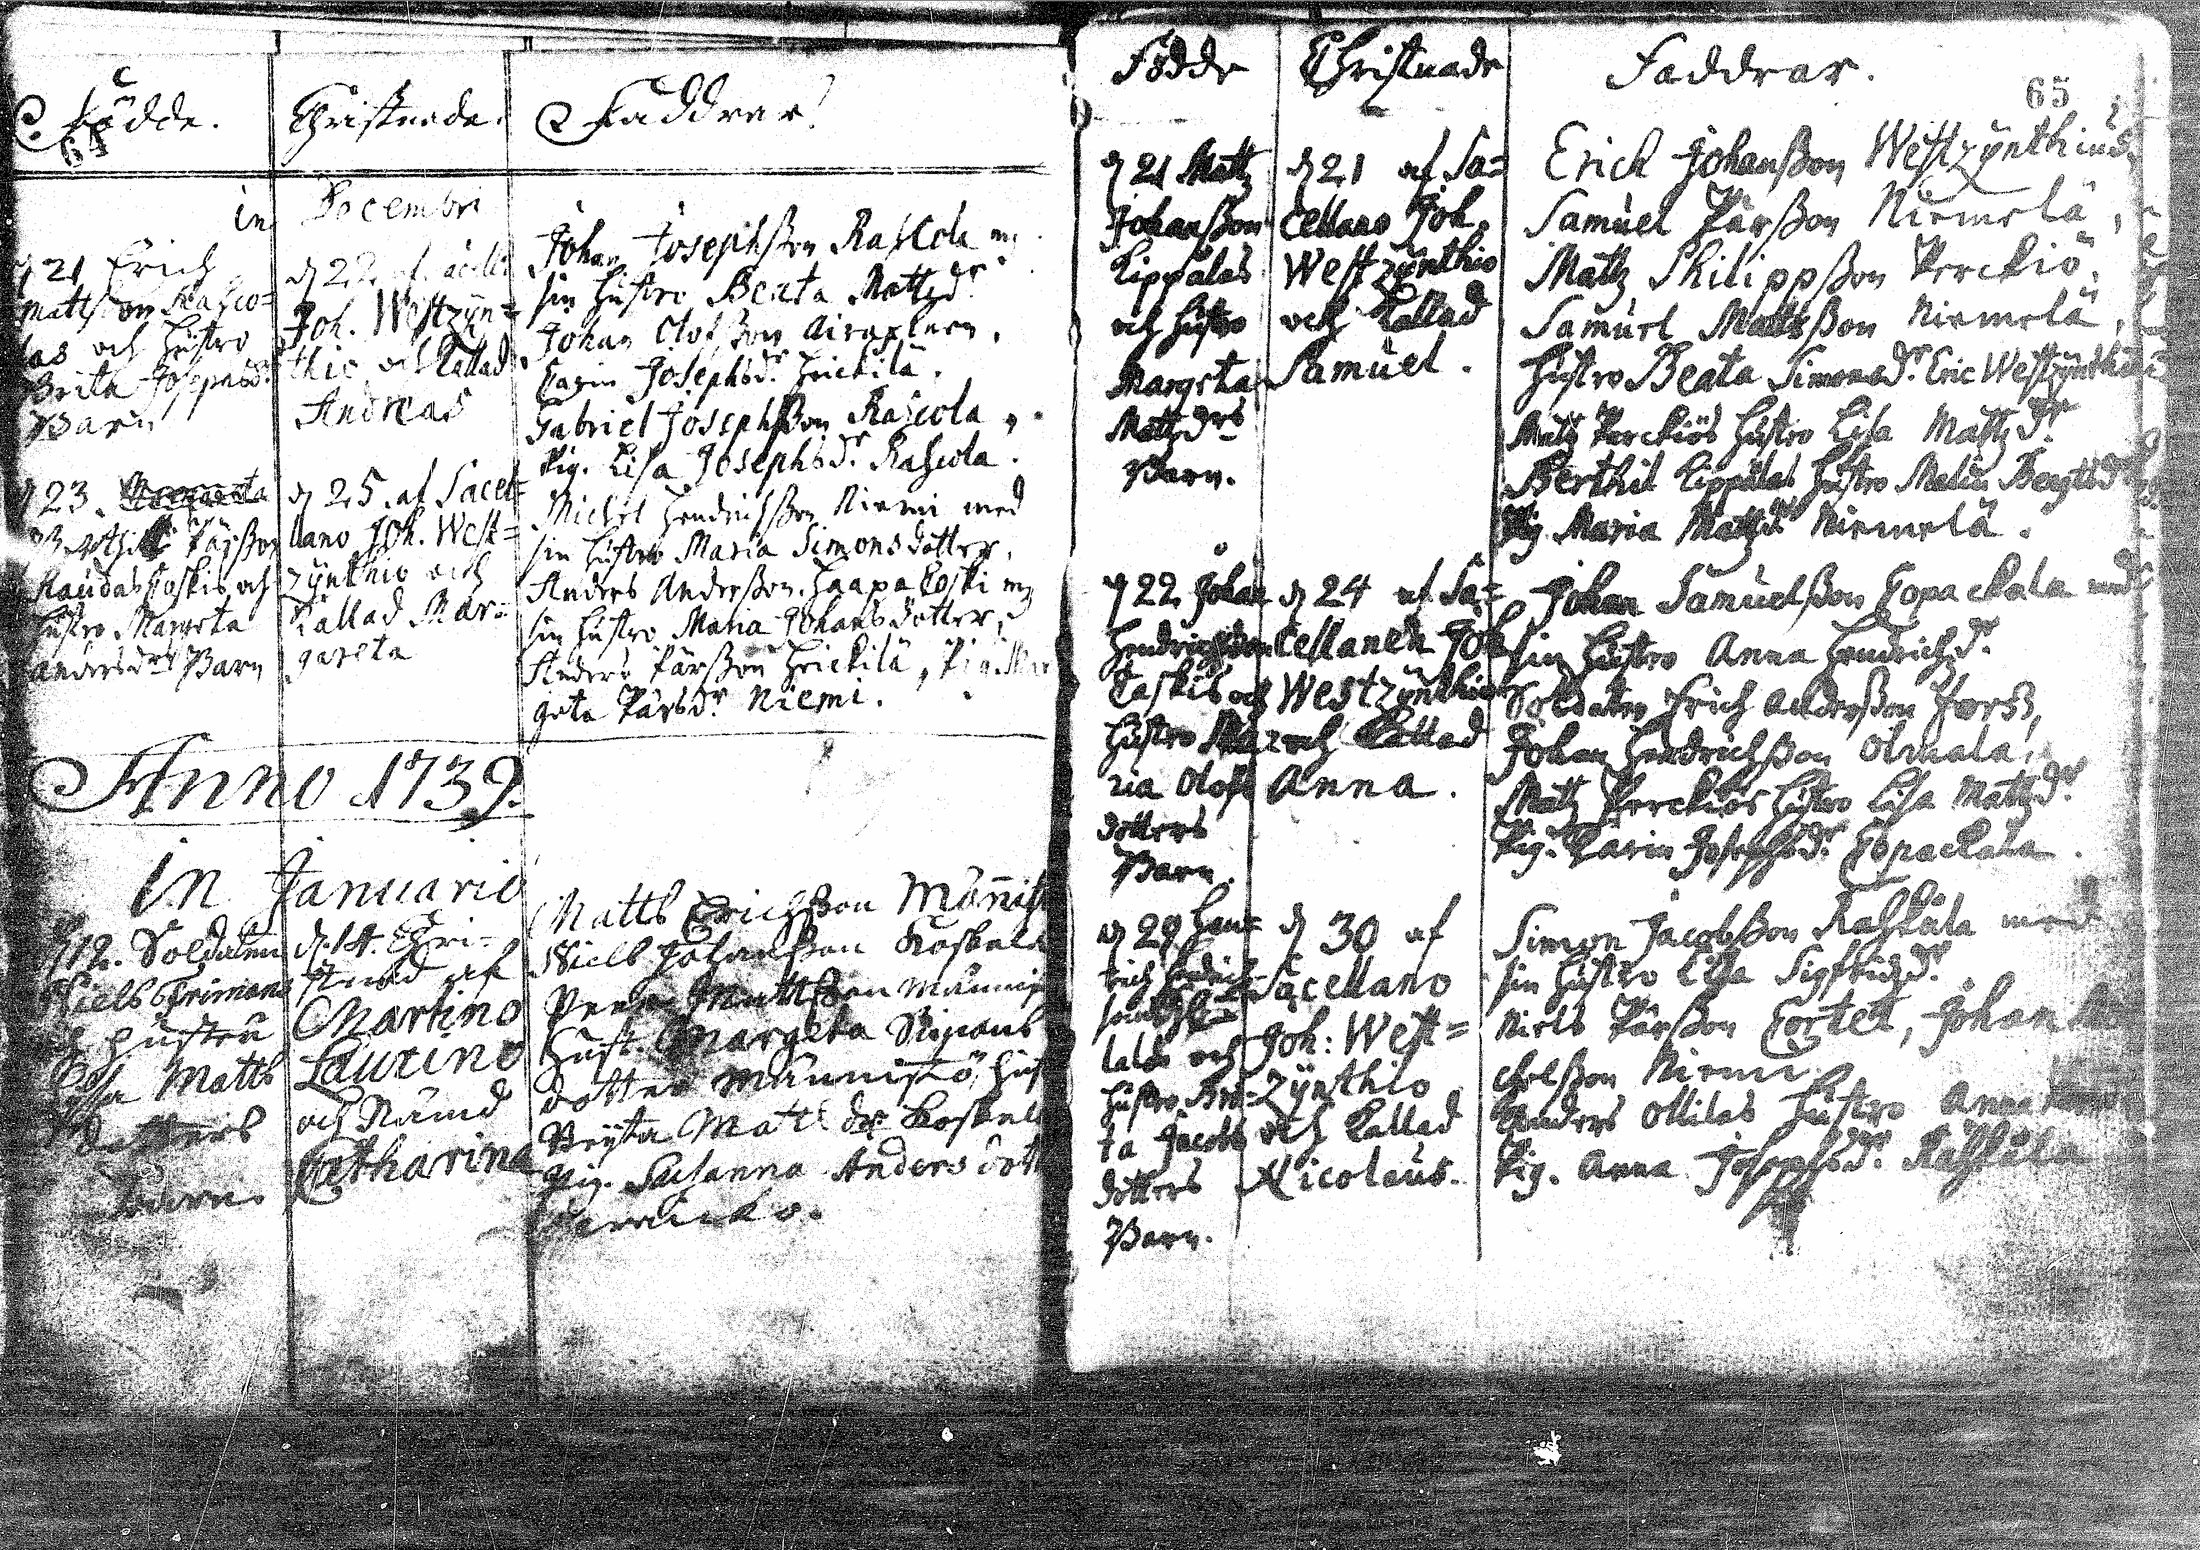 Födde.
64
Christnade.
Faddrar.
in Decembri
d 21 Erich
Mattsson Rahco=
las och hustro
Brita Josephsdr
Barn
d 22 af Sacell:
Joh. Westzyn=
thio och kallad
Andreas
Johan Josephßon Rahcola m
sin hustro Beata Mattzdr
Johan Olofßon Airaxinen,
Carin Josephsdr Heickilä.
Gabriel Josephßon Rahcola,
Pig. Lisa Josephsdr Rahcola.
d 23.
Berthil Pärßon
Raudaskoskis och
hustro Margeta
Andersdrs Barn
d 25. af Sacel=
lano Joh. West=
zynthio och
kallad Mar=
gareta
Michel Hendrichßon Niemi med
sin hustro Maria Simonsdotter,
Anders Anderßon Haapakoski m
sin hustro Maria Johansdotter,
Anders Pärßon Heickilä, Pig. Mar
geta Pärsdr Niemi.
Anno 1739.
in Januario
d 12. Soldaten
Niels Frimans
och hustru
Matts
dotters
barn.
d. 14. Chri=
stnad af
Martino
Laurino
och Nämd
Catharina
Matts Erichßon Männist
Niels Johanßon Koskela
Matthßon Männis
Hust. Margeta
dotter Männistö, Hust
Matts dr Koskel
Pig. Susanna Anders dott
Födde
Christnade
Faddrar.
65
d 21 Mattz
Johanßon
Kippälas
och hustro
Margeta
Mattzdrs
Barn.
d 21 af Sa=
cellano Joh.
Westzynthio
och kallad
Samuel.
Erich Johanßon Westzynthius.
Samuel Pärßon Niemelä,
Mattz Philippßon Perckiö.
Samuel Mattsßon Niemelä,
hustro Beata Simonsdr. Eric Westzynthii
Mattz Perckiös hustro Lisa Mattzdr.
Berthil Kippälas hustro Malin Bengtsdr
Pig Maria Mattzdr Niemelä.
d 22. Johan
Hendrichßon
och
hustro Ma=
ria Olofs
dotters
Barn.
d 24 af Sa=
cellanen Joh
Westzynthio
och kallad
Anna.
Johan Samuelßon Topackala med
sin hustro Anna Hendrichdr.
Soldaten Erich Anderßon Forß,
Johan Hendrichßon Olmala,
Mattz Perckiös hustro Lisa Mattzdr.
Pig. Karin Josephsdr. Topackala.
d 29 Hen=
rich Hendrich
lalas och
hustro Bri=
ta Jacobs
dotters
Barn.
d 30 af
Sacellano
Joh: West=
zynthio
och kallad
Nicolaus.
Simon Jacobßon Rahkala med
sin hustro Lisa Sigfridzdr.
Niels Pärßon Cortet, Johan Mi
chelßon Niemi.
Anders Ollilas hustro Anna
Pig. Anna Josephsdr. Rahkala